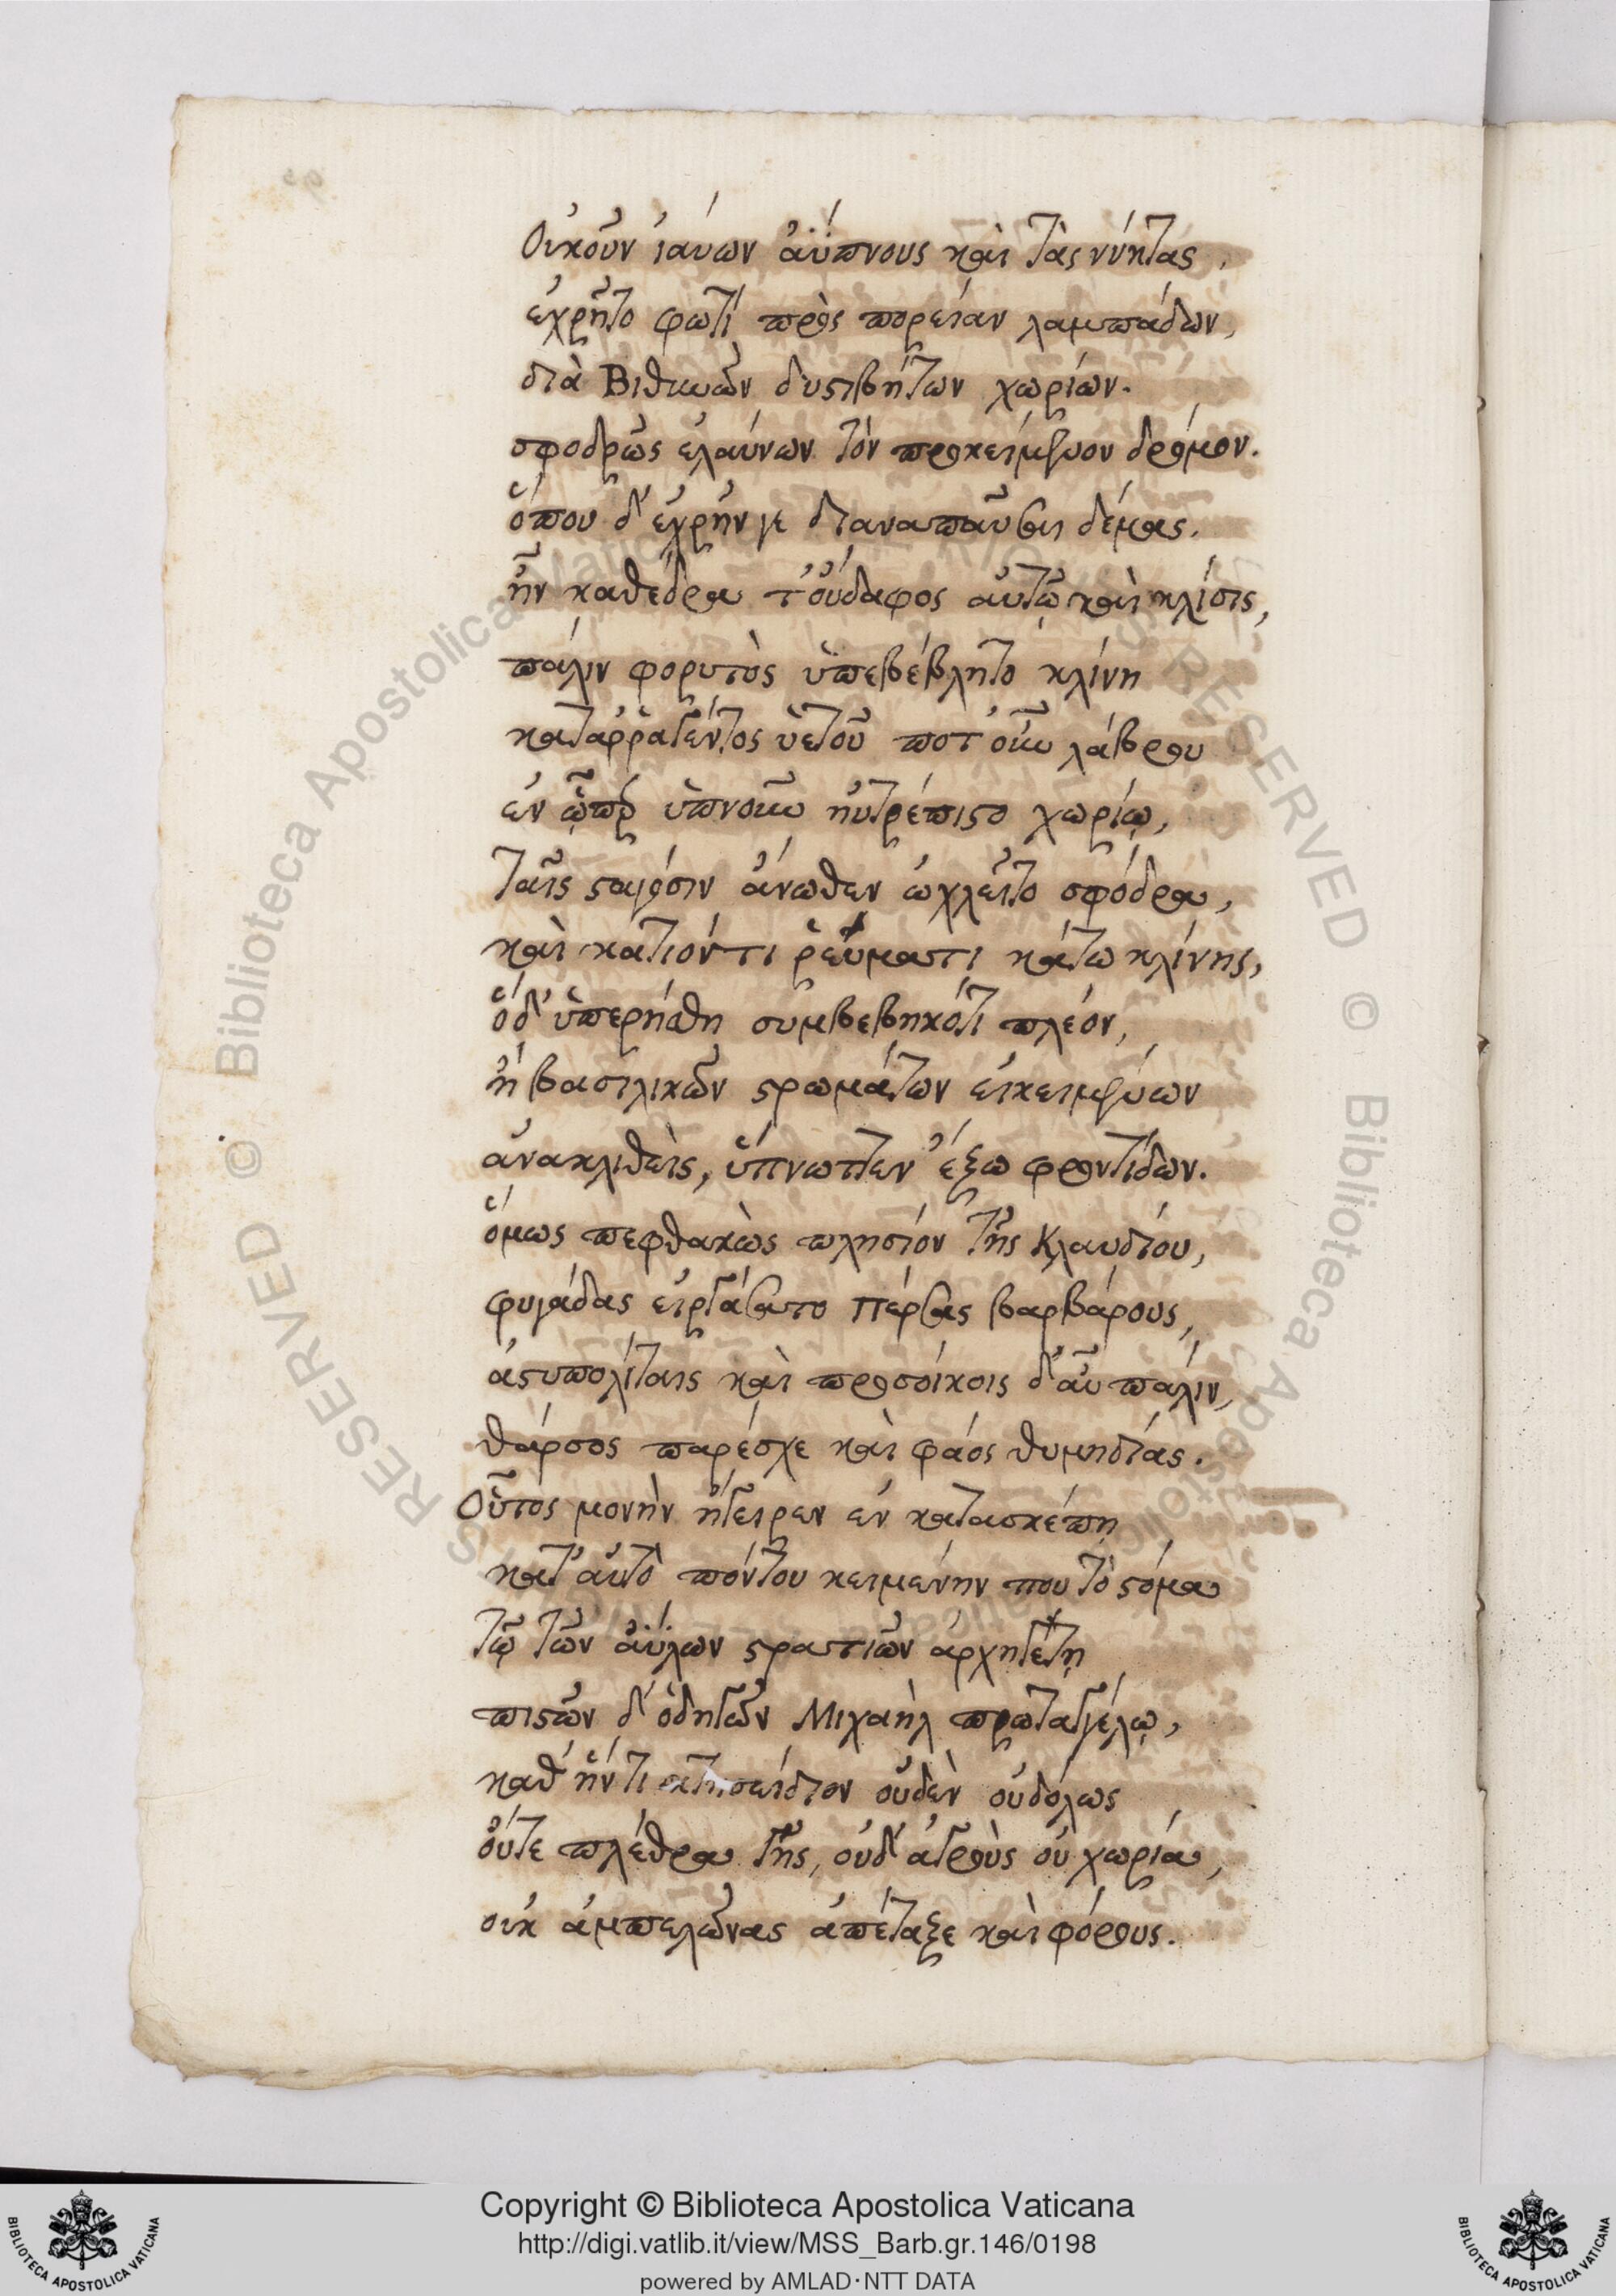 Οὐκοῦν ἰαύων ἀΰπνους καὶ τὰς νύκτας,
ἐχρῆτο φωτὶ πρὸς πορείαν λαμπάδων,
διὰ Βιθυνῶν δυσβήτων χωρίων.
σφοδρῶς ἐλαύνων τὸν προκείμενον δρόμον.
ὅπου δ' ἐχρῆν γε διαναπαῦσαι δέμας.
ἦν καθέδρα τοὔδαφος αὐτῷ καὶ κλίσις,
πάλιν φορυτὸς ὑπεβέβλητο κλίνη
καταρραγέντος ὑετοῦ ποτ' οὖν λάβρου
ἐν ᾧπερ ὑπνοῦν ηὐτρέπιστο χωρίῳ,
ταῖς σταγόσιν ἄνωθεν ὠχλεῖτο σφόδρα,
καὶ κατιόντι ῥεύματι κάτω κλίνης,
ὅδ' ὑπερήσθη συμβεβηκότι πλέον,
ἢ βασιλικῶν στρωμάτων
ἀνακλιθεὶς, ὕπνωττεν ἔξω φροντίδων.
ὅμως πεφθακὼς πλησίον τῆς Κλαυδίου,
φυγάδας εἰργάσατο Πέρσας βαρβάρους,
ἀστυπολίταις καὶ προσοίκοις δ' αὖ πάλιν,
θάρσος παρέσχε καὶ φάος θυμηδίας.
Οὗτος μονὴν ἤγειρεν ἐν κατασκέπῃ
κατ' αὐτὸ πόντου κειμένην που τὸ στόμα
τῷ τῶν ἀΰλων στρατιῶν ἀρχηγέτῃ
πιστῶν δ' ὁδηγῶν Μιχαὴλ πρωταγγέλῳ,
καθ' ἥν τι κτησείδιον οὐδὲν οὐδόλως
οὔτε πλέθρα γῆς, οὐδ' ἀγροὺς οὐ χωρία,
οὐκ ἀμπελῶνας ἀπέταξε καὶ φόρους.
Copyright © Biblioteca Apostolica Vaticana
http://digi.vatlib.it/view/MSS_Barb.gr.146/0198
powered by AMLAD·NTT DATA